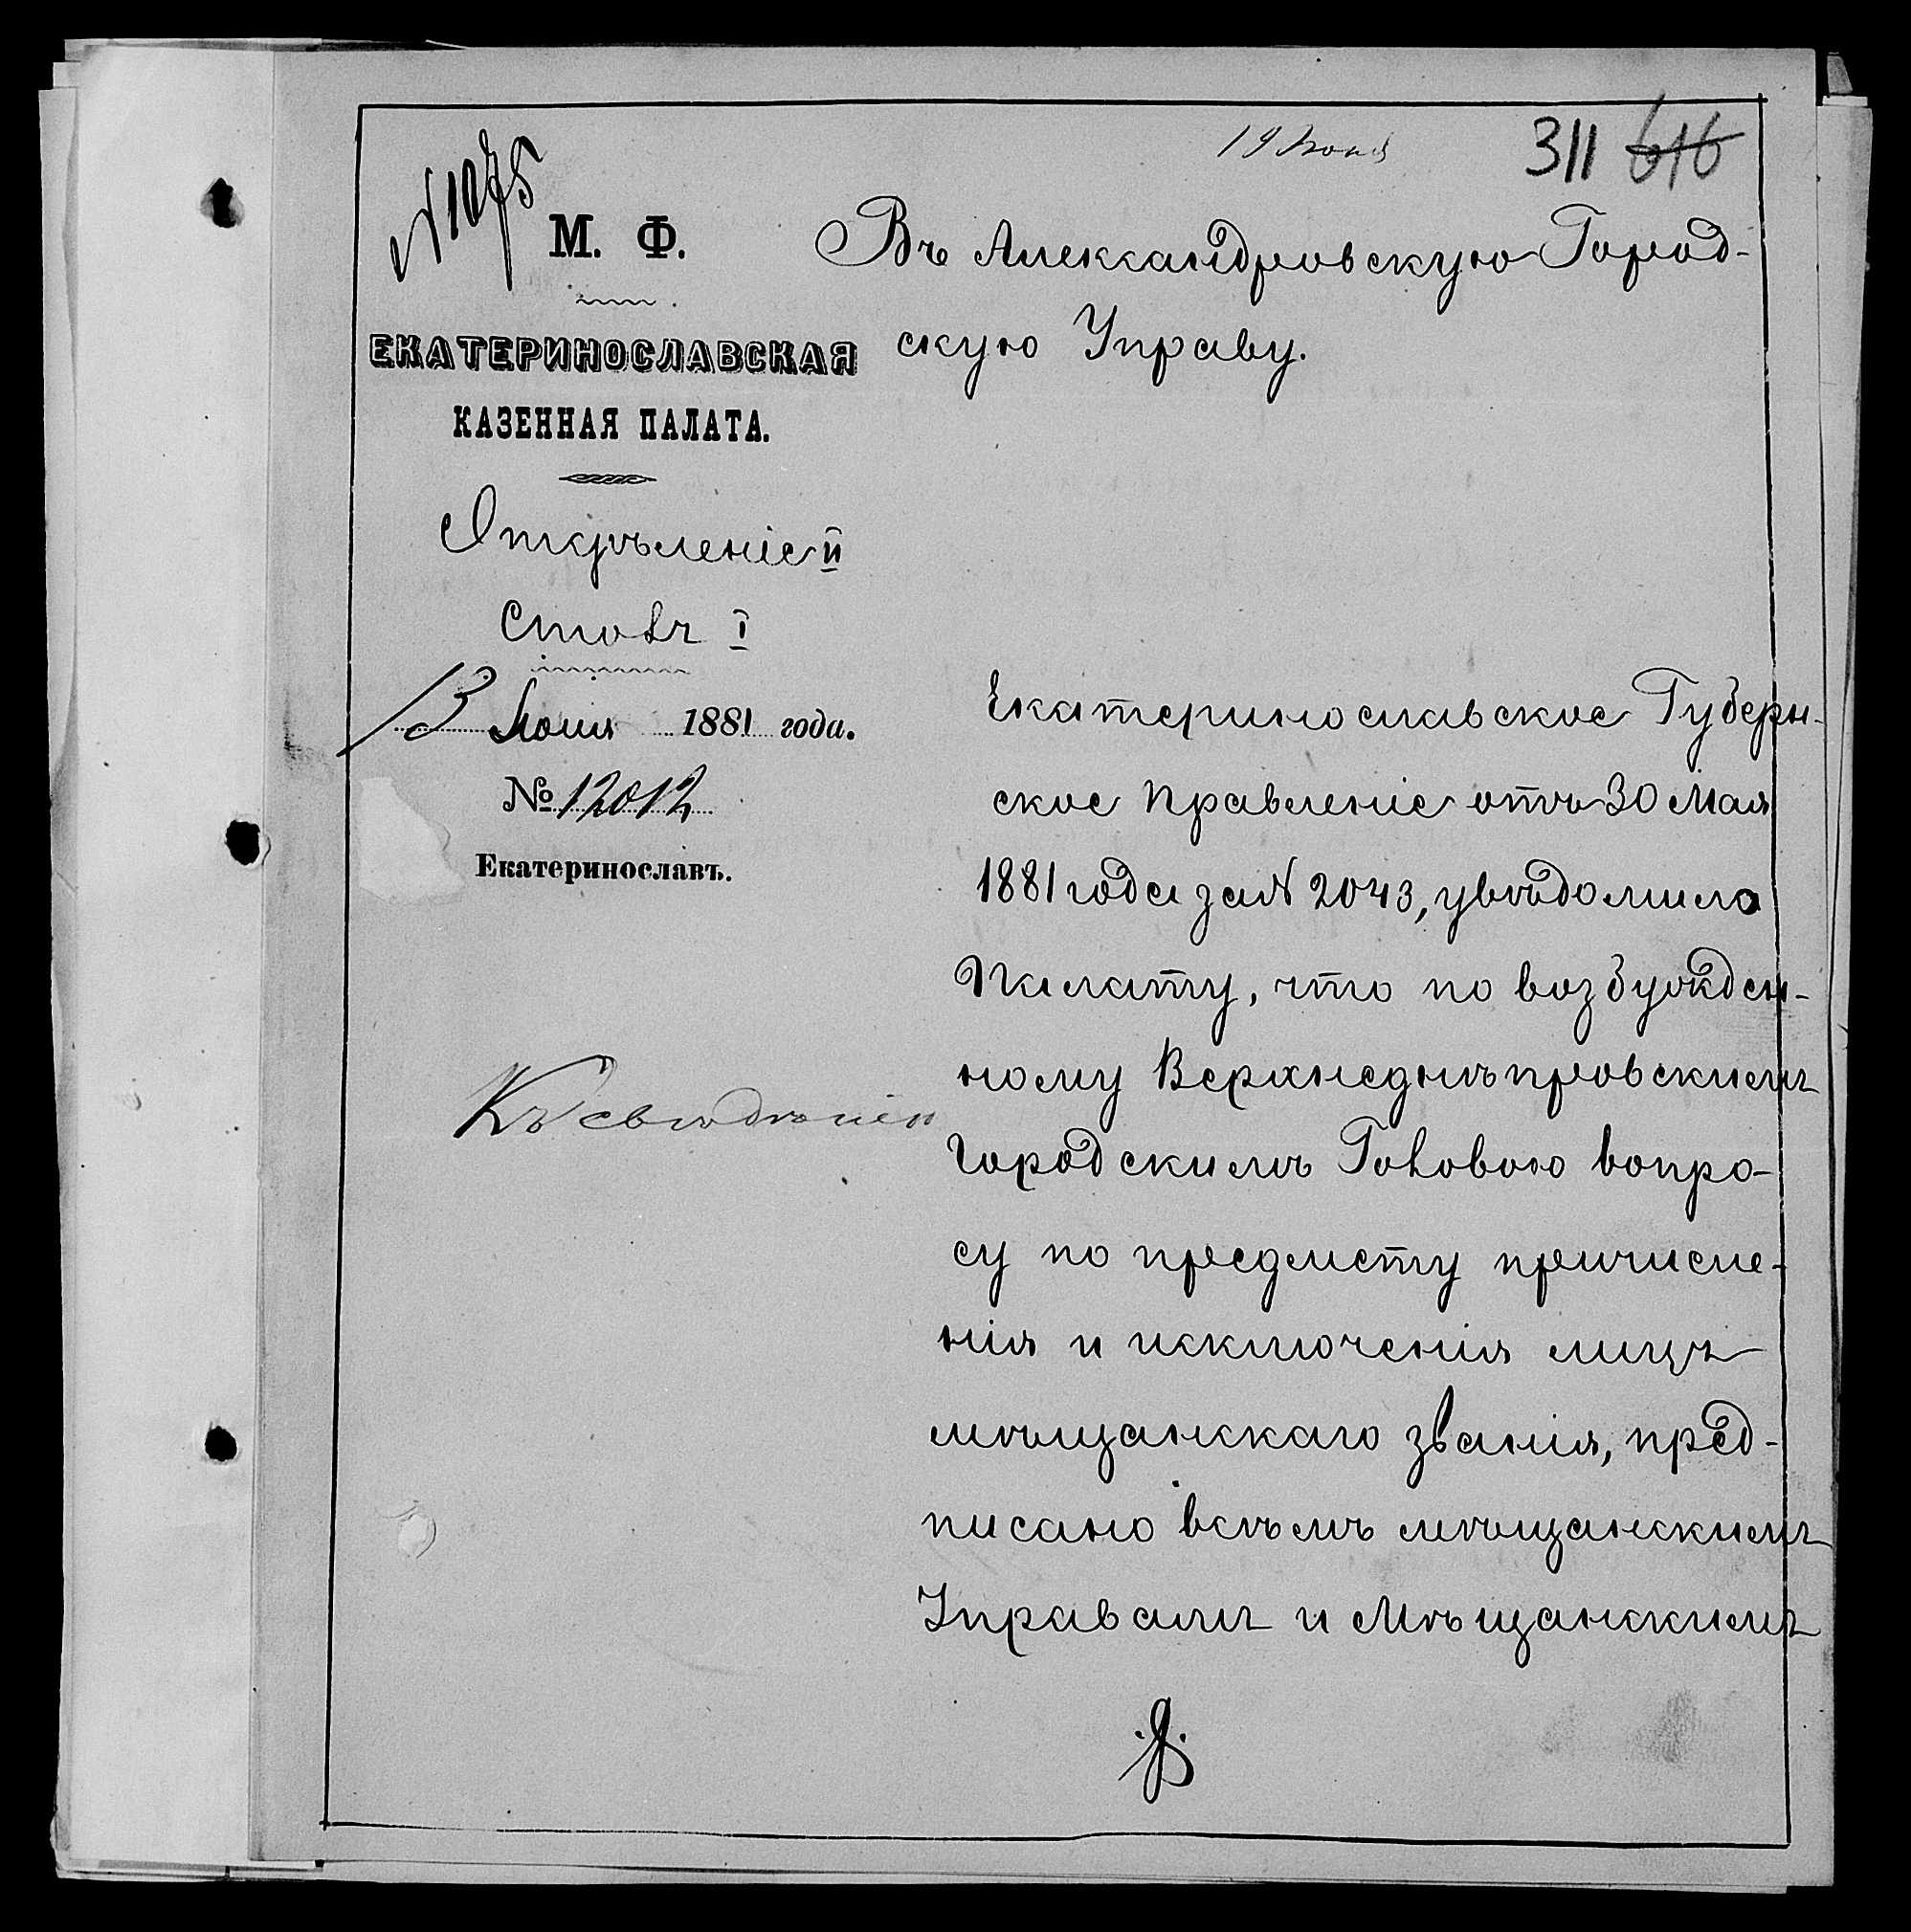 19 Июня
311 616
№1075
М. Ф.
ЕКАТЕРИНОСЛАВСКАЯ
КАЗЕННАЯ ПАЛАТА.
Отдѣленіе II
Столъ I
13 Іюня 1881 года.
№ 12012
Екатеринославъ.
Къ свѣдѣнію
Въ Александровскую Город-
скую Управу.
Екатеринославское Губерн-
ское Правленіе отъ 30 Мая
1881 года за № 2043, увѣдомило
Палату, что по возбужден-
ному Верхнеднѣпровскимъ
Городскимъ Головою вопро-
су по предмету причисле-
нія и исключенія лицъ
мѣщанскаго званія, пред-
писано всѣмъ мѣщанскимъ
Управамъ и Мѣщанскимъ